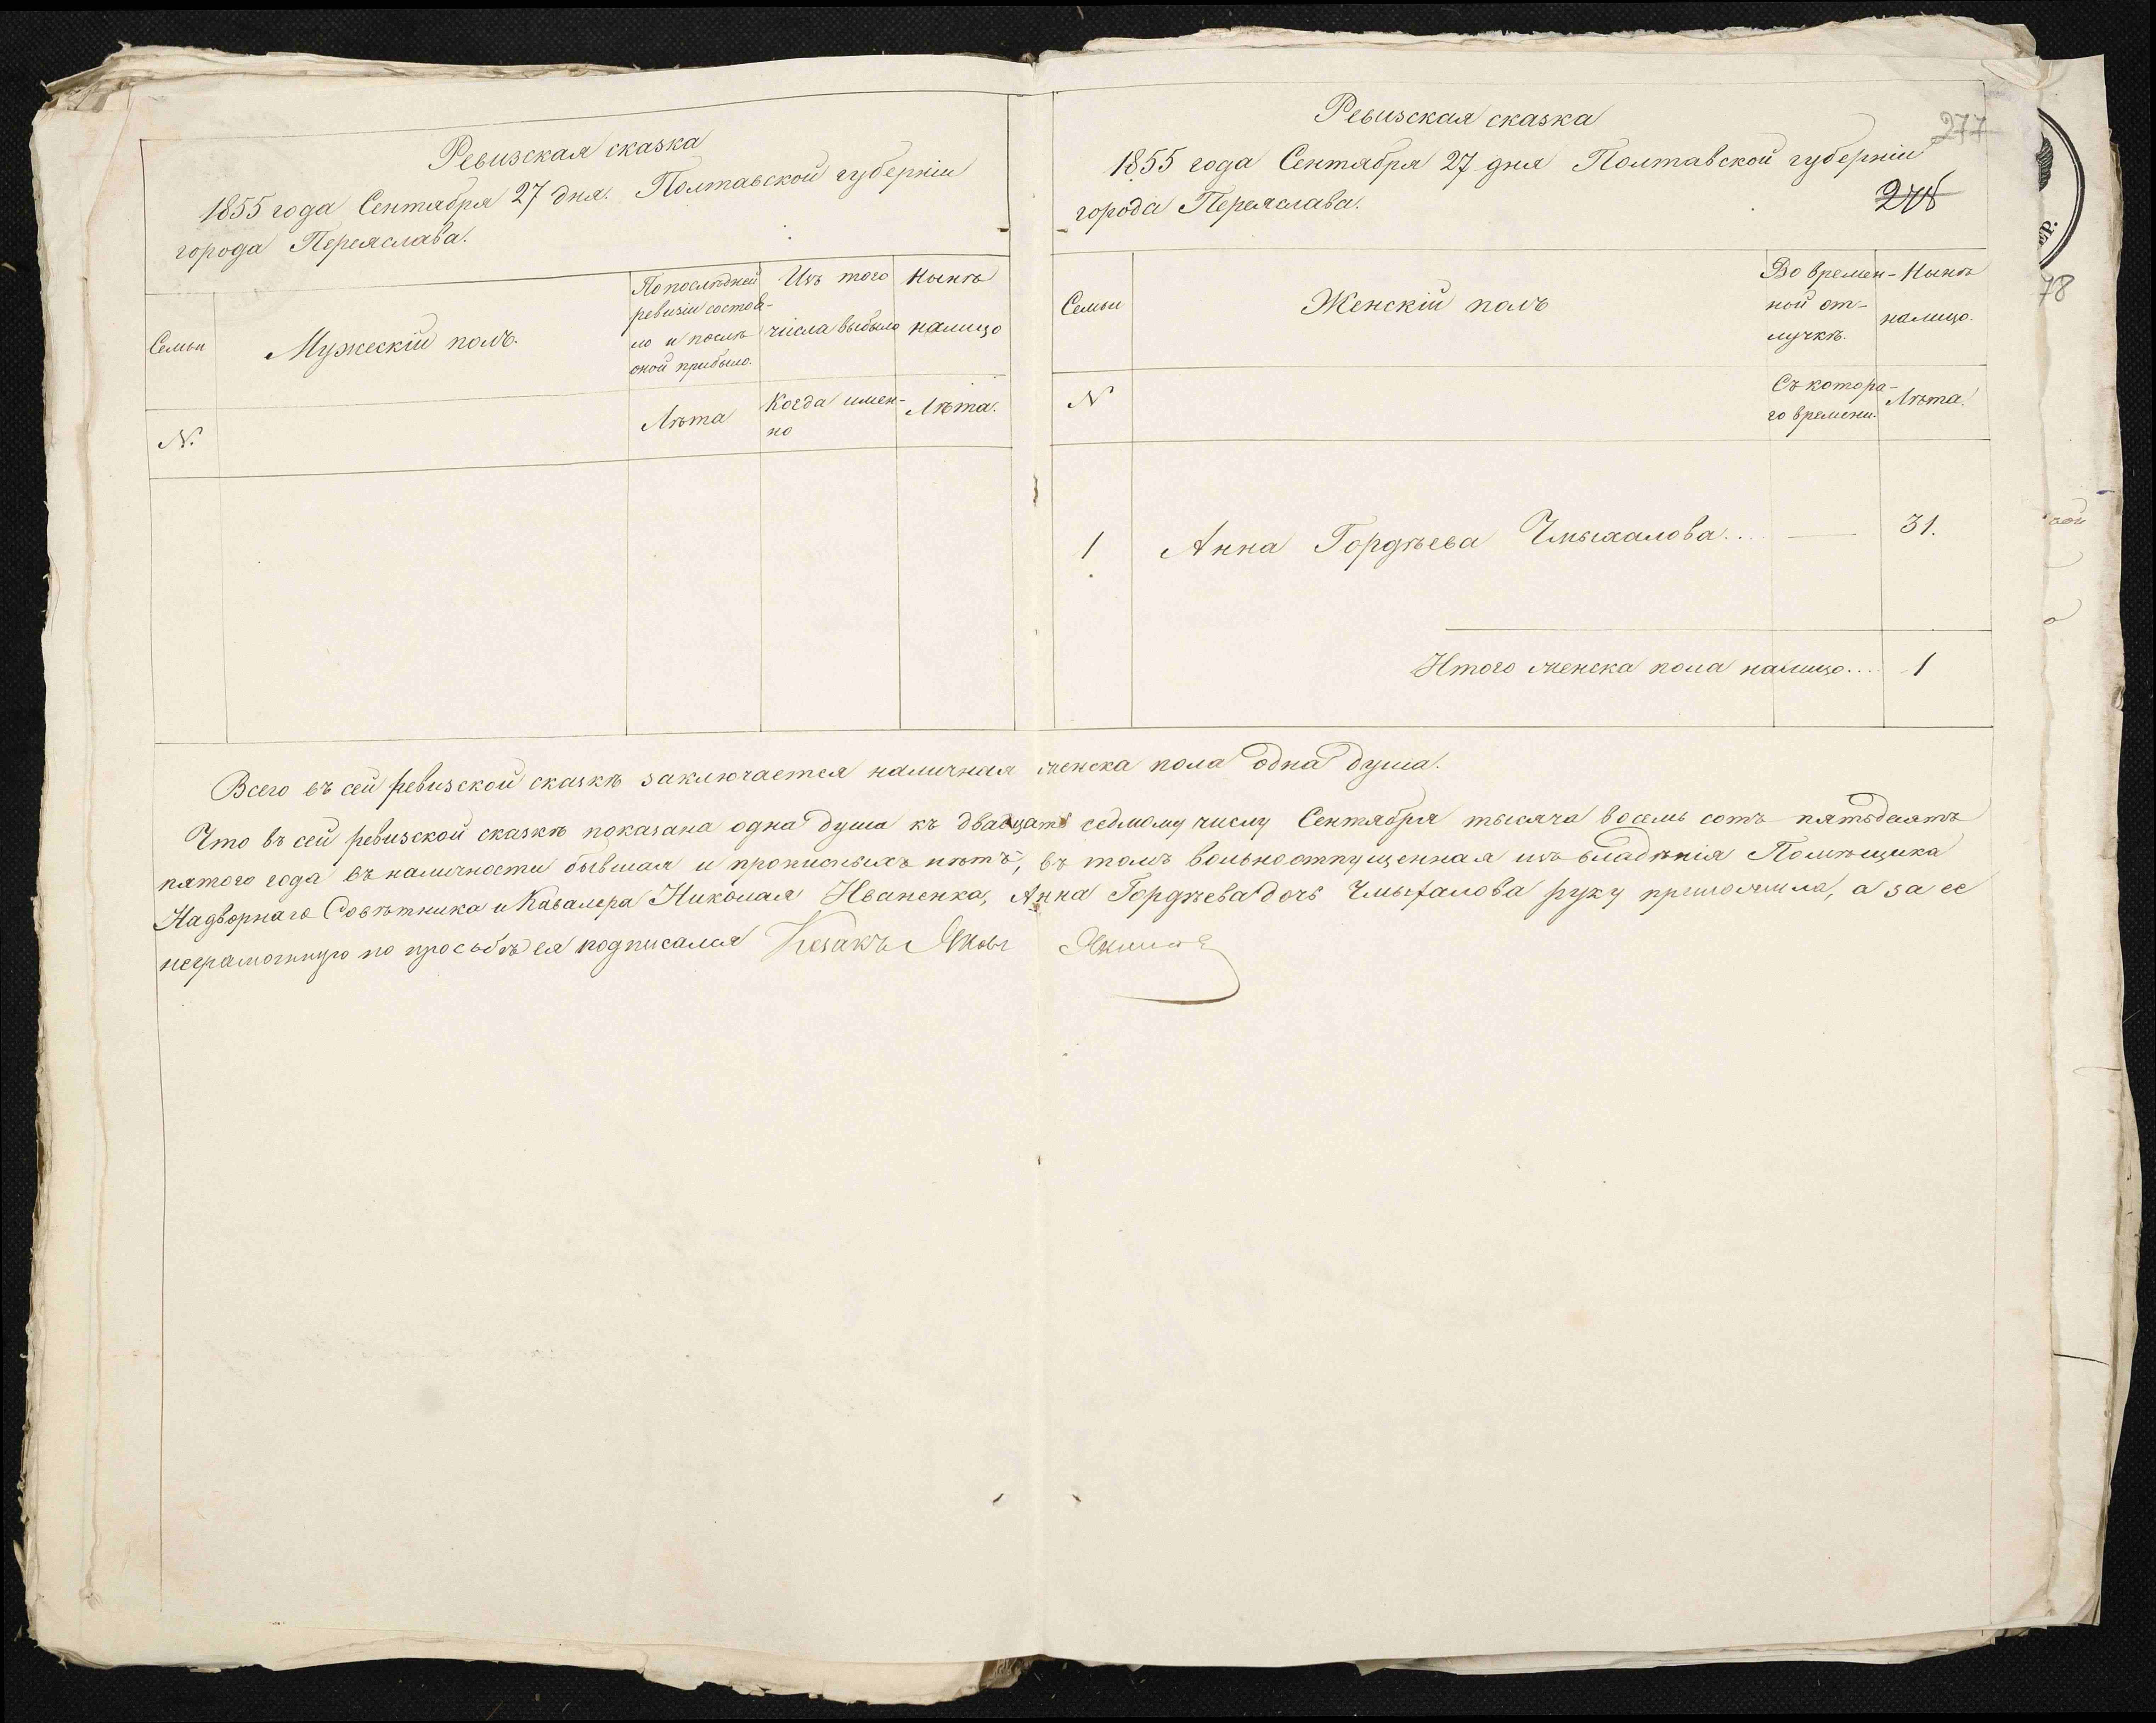 Ревизская сказка
1855 года Сентября 27 дня. Полтавской губерніи
города Переяслава.
Семьи
Мужескій полъ.
По последней
ревизіи состоя-
ло и послѣ
оной прибыло.
Изъ того
числа выбыло
Нынѣ
налицо
N.
Лѣта
Когда имен-
но
Лѣта.
277
Ревизская сказка
1855 года Сентября 27 дня Полтавской губерніи
города Переяслава.
Семьи
Женскій полъ
Во времен-
ной от-
лучкѣ.
Нынѣ
налицо.
N
Съ котора-
го времени.
Лѣта.
1 Анна Гордѣева 31.
Итого женска пола налицо.... 1
Всего въ сей ревизской сказкѣ заключается наличная женска пола одна душа.
Что въ сей ревизской сказкѣ показана одна душа къ двадцать седмому числу Сентября тысяча восемь сотъ пятьдесятъ
пятого года въ наличности бывшая и прописныхъ нѣтъ, въ томъ вольноотпущенная изъ владѣнія Помѣщика
Надворнаго Совѣтника и Кавалера Николая Иваненка, Анна Гордѣева дочь руку приложила, а за ее
неграмотную по просьбѣ ея подписался Козакъ
78